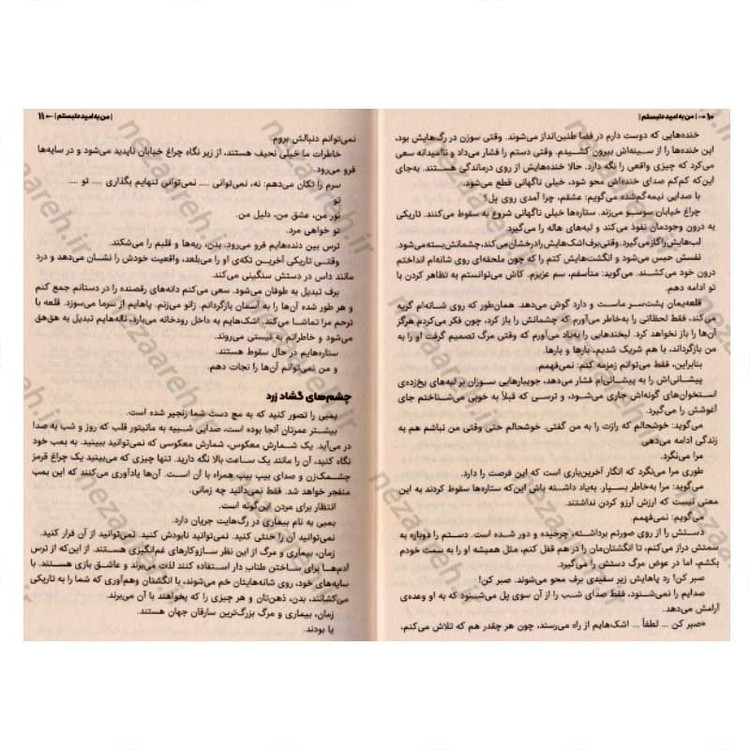 ۱۰ | من به امید دلبستم |
خنده‌هایی که دوست دارم در فضا طنین‌انداز می‌شوند. وقتی سوزن در رگ‌هایش بود،
این خنده‌ها را از سینه‌اش بیرون کشیدم. وقتی دستم را فشار می‌داد و ناامیدانه سعی
می‌کرد که چیزی واقعی را نگه دارد. حالا خنده‌هایش از روی درماندگی هستند. به‌جای
این‌که کم‌کم صدای خنده‌اش محو شود، خیلی ناگهانی قطع می‌شود.
با صدایی نیمه‌گم‌شده می‌گویم: عشقم، چرا آمدی روی پل؟
چراغ خیابان سوسو می‌زند. ستاره‌ها خیلی ناگهانی شروع به سقوط می‌کنند. تاریکی
به درون وجودمان نفوذ می‌کند و لبه‌های هاله را می‌گیرد.
لب‌هایش را گاز می‌گیرد. وقتی برف اشک‌هایش را درخشان می‌کند، چشمانش بسته می‌شود.
نفسش حبس می‌شود و انگشت‌هایش کتم را که چون ملحفه‌ای روی شانه‌ام انداختم
درون خود می‌کشند. می‌گوید: متأسفم، سم عزیزم. کاش می‌توانستم به تظاهر کردن با
تو ادامه دهم.
قلعه‌یمان پشت‌سر ماست و دارد گوش می‌دهد. همان‌طور که روی شانه‌ام گریه
می‌کند، فقط لحظاتی را به‌خاطر می‌آورم که چشمانش را باز کرد، چون فکر می‌کردم هرگز
آن‌ها را باز نخواهد کرد. لبخندهایی را به‌یاد می‌آورم که وقتی مرگ تصمیم گرفت او را به
من بازگرداند، با هم شریک شدیم، بارها و بارها.
بنابراین، فقط می‌توانم زمزمه کنم: نمی‌فهمم.
پیشانی‌اش را به پیشانی‌ام فشار می‌دهد، جویبارهایی سوزان بر لبه‌های یخ‌زده‌ی
استخوان‌های گونه‌اش جاری می‌شود، و ترسی که قبلاً به خوبی می‌شناختم جای
آغوشش را می‌گیرد.
می‌گوید: خوشحالم که رازت را به من گفتی. خوشحالم حتی وقتی من نباشم هم به
زندگی ادامه می‌دهی
مرا می‌نگرد.
طوری مرا می‌نگرد که انگار آخرین‌باری است که این فرصت را دارد.
می‌گوید: مرا به‌خاطر بسپار. به‌یاد داشته باش این‌که ستاره‌ها سقوط کردند به این
معنی نیست که ارزش آرزو کردن نداشتند.
می‌گویم: نمی‌فهمم.
دستش را از روی صورتم برداشته، چرخیده و دور شده است. دستم را دوباره به
سمتش دراز می‌کنم، تا انگشتان‌مان را در هم قفل کنم، مثل همیشه او را به سمت خودم
بکشم، اما در عوض مرگ دستش را می‌گیرد.
صبر کن! رد پاهایش زیر سفیدی برف محو می‌شوند. صبر کن!
صدایم را نمی‌شنود، فقط صدای شب را از آن سوی پل می‌شنود که به او وعده‌ی
آرامش می‌دهد.
«صبر کن ... لطفاً ... اشک‌هایم از راه می‌رسند، چون هر چقدر هم که تلاش می‌کنم،
| من به امید دلبستم | ۱۱
نمی‌توانم دنبالش بروم
خاطرات ما خیلی نحیف هستند، از زیر نگاه چراغ خیابان ناپدید می‌شود و در سایه‌ها
فرو می‌رود
سرم را تکان می‌دهم: نه، نمی‌توانی .... نمی‌توانی تنهایم بگذاری .... تو ....
تو
نور من، عشق من، دلیل من.
تو خواهی مرد.
ترس بین دنده‌هایم فرو می‌رود: بدن، ریه‌ها و قلبم را می‌شکند.
وقتی تاریکی آخرین تکه‌ی او را می‌بلعد، واقعیت خودش را نشان می‌دهد و درد
مانند داس در دستش سنگینی می‌کند.
برف تبدیل به طوفان می‌شود. سعی می‌کنم دانه‌های رقصنده را در دستانم جمع کنم
و هر طور شده آن‌ها را به آسمان بازگردانم. زانو می‌زنم. پاهایم از سرما می‌سوزد. قلعه با
ترحم مرا تماشا می‌کند. اشک‌هایم به داخل رودخانه می‌بارد، ناله‌هایم تبدیل به هق‌هق
می‌شود و خاطراتم به نیستی می‌روند.
ستاره‌هایم در حال سقوط هستند.
و من نمی‌توانم آن‌ها را نجات دهم.
چشم‌های گشاد زرد
بمبی را تصور کنید که به مچ دست شما زنجیر شده است.
بیشتر عمرتان آنجا بوده است، صدایی شبیه به مانیتور قلب که روز و شب به صدا
در می‌آید. یک شمارش معکوس، شمارش معکوسی که نمی‌توانید ببینید. به بمب خود
نگاه کنید، آن را مانند یک ساعت بالا نگه دارید. تنها چیزی که می‌بینید یک چراغ قرمز
چشمک‌زن و صدای بیپ بیپ همراه با آن است. آن‌ها یادآوری می‌کنند که این بمب
منفجر خواهد شد. فقط نمی‌دانید چه زمانی.
انتظار برای مردن این‌گونه است.
بمبی به نام بیماری در رگ‌هایت جریان دارد.
نمی‌توانید آن را خنثی کنید. نمی‌توانید نابودش کنید. نمی‌توانید از آن فرار کنید.
زمان، بیماری و مرگ از این نظر سازوکارهای غم‌انگیزی هستند. از این‌که از ترس
آدم‌ها برای ساختن طناب دار استفاده کنند لذت می‌برند و عاشق بازی هستند. با
سایه‌های خود، روی شانه‌هایتان خم می‌شوند، با انگشتان وهم‌آوری که شما را به تاریکی
می‌کشانند، بدن، ذهن‌تان و هر چیزی را که بخواهند با آن می‌برند.
زمان، بیماری و مرگ بزرگ‌ترین سارقان جهان هستند.
یا بودند.
nezaareh.ir